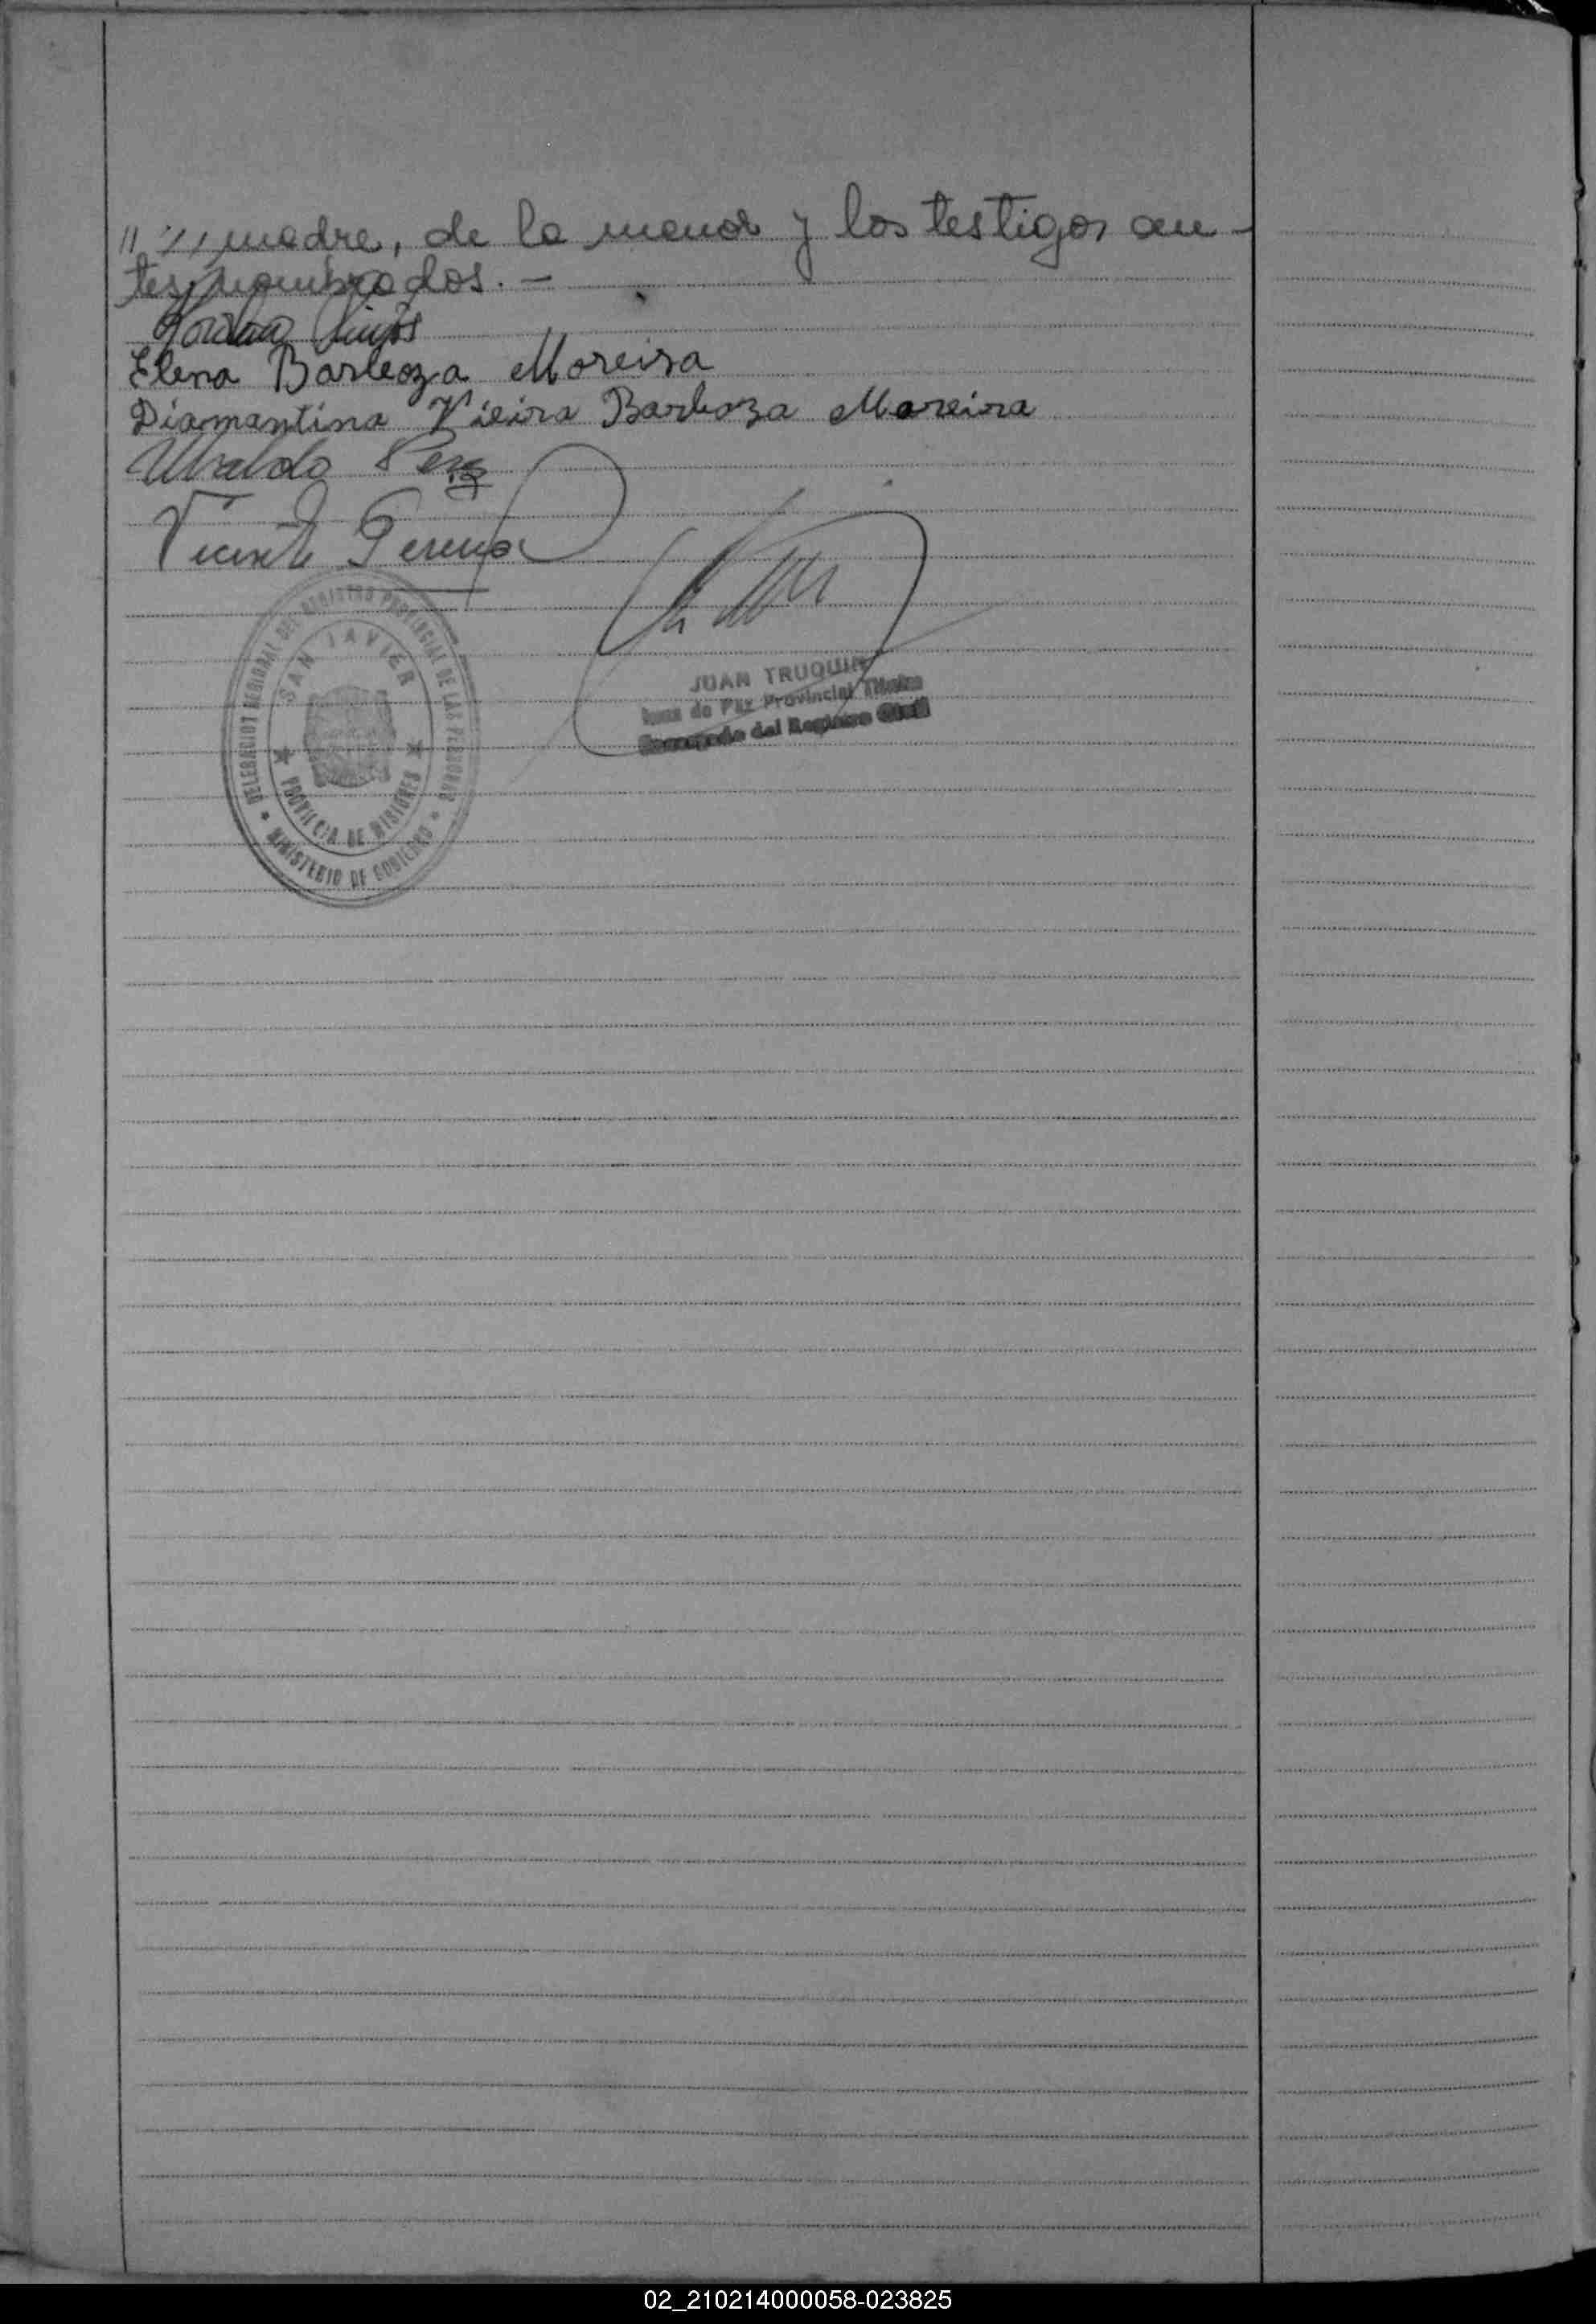 // '//, madre, de la menor y los testigos an-
tes nombrados. -
Elena Barboza Moreira
Diamantina Vieira Barboza Moreira
Ubaldo
Vicente Pereyra
DELEGACIOT REGIONAL DEL REGISTRO PROVINCIAL DE LAS PERSONAS
SAN JAVIER
PROVINCIA DE MISIONES
MINISTERIO DE GOBIERNO
JUAN TRUQUIN
Juez de Paz Provincial Titular
Encargado del Registro Civil
02_210214000058-023825